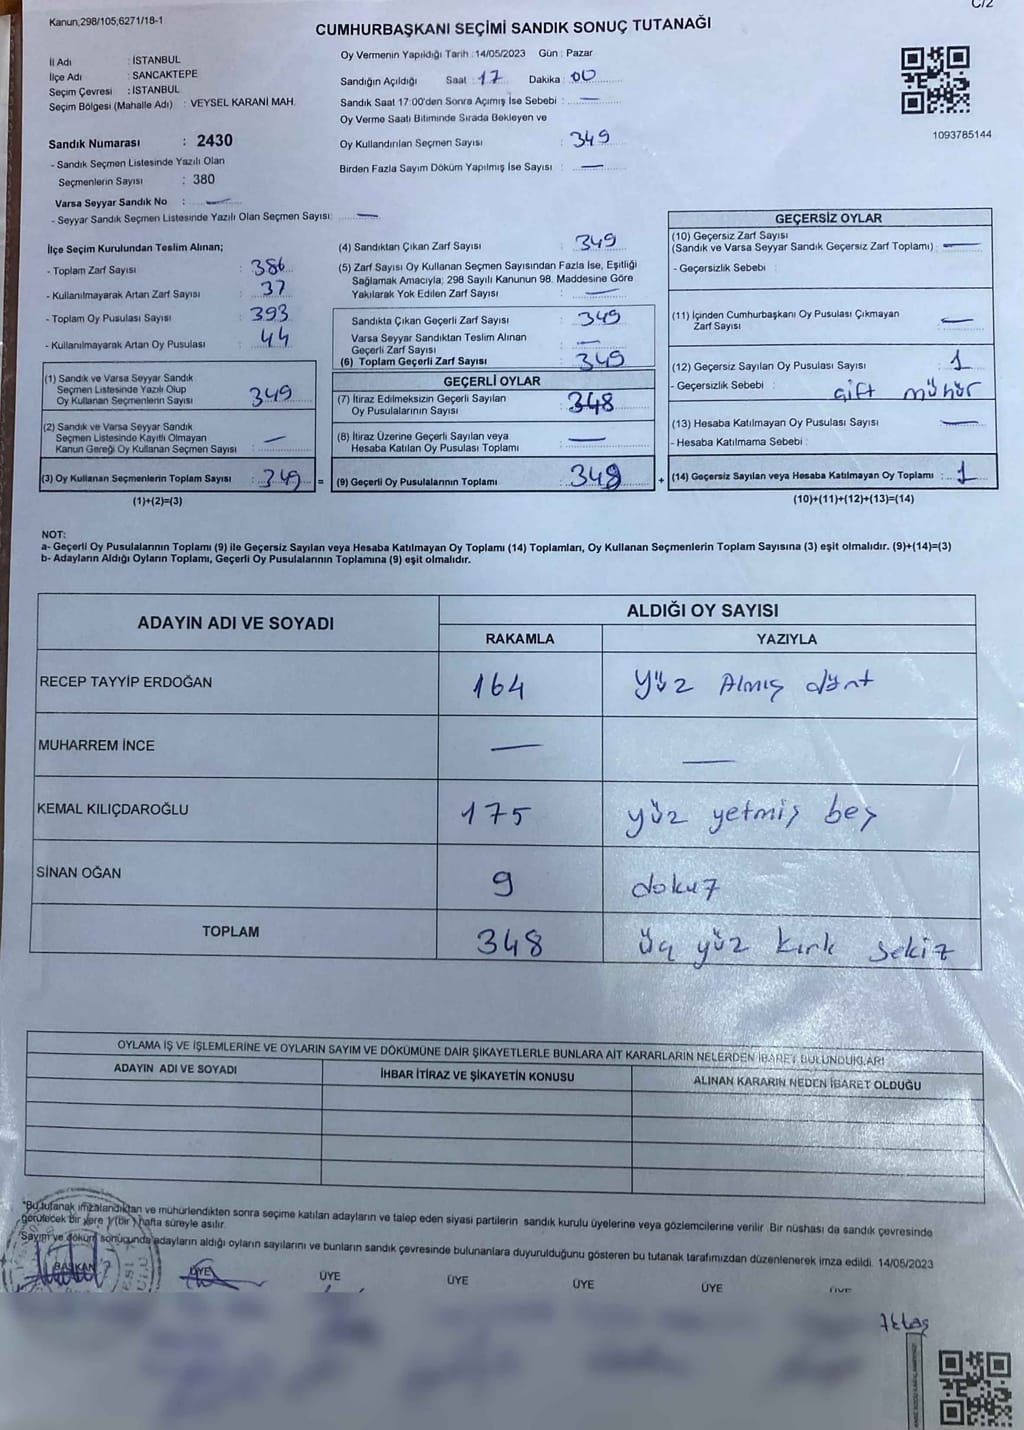 C/2
Kanun,298/105,6271/18-1
CUMHURBAŞKANI SEÇİMİ SANDIK SONUÇ TUTANAĞI
İl Adı : İSTANBUL
İlçe Adı : SANCAKTEPE
Seçim Çevresi : İSTANBUL
Seçim Bölgesi (Mahalle Adı) : VEYSEL KARANİ MAH.
Sandık Numarası : 2430
- Sandık Seçmen Listesinde Yazılı Olan
Seçmenlerin Sayısı : 380
Varsa Seyyar Sandık No : —
- Seyyar Sandık Seçmen Listesinde Yazılı Olan Seçmen Sayısı: —
Oy Vermenin Yapıldığı Tarih : 14/05/2023 Gün : Pazar
Sandığın Açıldığı Saat : 17 Dakika : 00
Sandık Saat 17:00'den Sonra Açımış İse Sebebi : —
Oy Verme Saati Bitiminde Sırada Bekleyen ve
Oy Kullandırılan Seçmen Sayısı : 349
Birden Fazla Sayım Döküm Yapılmış İse Sayısı : —
1093785144
İlçe Seçim Kurulundan Teslim Alınan;
- Toplam Zarf Sayısı : 386
- Kullanılmayarak Artan Zarf Sayısı : 37
- Toplam Oy Pusulası Sayısı : 393
- Kullanılmayarak Artan Oy Pusulası : 44
(1) Sandık ve Varsa Seyyar Sandık
Seçmen Listesinde Yazılı Olup
Oy Kullanan Seçmenlerin Sayısı : 349
(2) Sandık ve Varsa Seyyar Sandık
Seçmen Listesinde Kayıtlı Olmayan
Kanun Gereği Oy Kullanan Seçmen Sayısı : —
(3) Oy Kullanan Seçmenlerin Toplam Sayısı : 349 =
(1)+(2)=(3)
(4) Sandıktan Çıkan Zarf Sayısı : 349
(5) Zarf Sayısı Oy Kullanan Seçmen Sayısından Fazla İse, Eşitliği
Sağlamak Amacıyla; 298 Sayılı Kanunun 98. Maddesine Göre
Yakılarak Yok Edilen Zarf Sayısı : —
Sandıkta Çıkan Geçerli Zarf Sayısı : 349
Varsa Seyyar Sandıktan Teslim Alınan
Geçerli Zarf Sayısı : —
(6) Toplam Geçerli Zarf Sayısı : 349
GEÇERLİ OYLAR
(7) İtiraz Edilmeksizin Geçerli Sayılan
Oy Pusulalarının Sayısı : 348
(8) İtiraz Üzerine Geçerli Sayılan veya
Hesaba Katılan Oy Pusulası Toplamı : —
(9) Geçerli Oy Pusulalarının Toplamı : 348 +
GEÇERSİZ OYLAR
(10) Geçersiz Zarf Sayısı
(Sandık ve Varsa Seyyar Sandık Geçersiz Zarf Toplamı) : —
- Geçersizlik Sebebi :
(11) İçinden Cumhurbaşkanı Oy Pusulası Çıkmayan
Zarf Sayısı : —
(12) Geçersiz Sayılan Oy Pusulası Sayısı : 1
- Geçersizlik Sebebi : çift mühür
(13) Hesaba Katılmayan Oy Pusulası Sayısı : —
- Hesaba Katılmama Sebebi :
(14) Geçersiz Sayılan veya Hesaba Katılmayan Oy Toplamı : 1
(10)+(11)+(12)+(13)=(14)
NOT:
a- Geçerli Oy Pusulalarının Toplamı (9) ile Geçersiz Sayılan veya Hesaba Katılmayan Oy Toplamı (14) Toplamları, Oy Kullanan Seçmenlerin Toplam Sayısına (3) eşit olmalıdır. (9)+(14)=(3)
b- Adayların Aldığı Oyların Toplamı, Geçerli Oy Pusulalarının Toplamına (9) eşit olmalıdır.
ADAYIN ADI VE SOYADI
ALDIĞI OY SAYISI
RAKAMLA YAZIYLA
RECEP TAYYİP ERDOĞAN 164 yüz Altmış dört
MUHARREM İNCE — —
KEMAL KILIÇDAROĞLU 175 yüz yetmiş beş
SİNAN OĞAN 9 dokuz
TOPLAM 348 üç yüz kırk sekiz
OYLAMA İŞ VE İŞLEMLERİNE VE OYLARIN SAYIM VE DÖKÜMÜNE DAİR ŞİKAYETLERLE BUNLARA AİT KARARLARIN NELERDEN İBARET BULUNDUKLARI
ADAYIN ADI VE SOYADI İHBAR İTİRAZ VE ŞİKAYETİN KONUSU ALINAN KARARIN NEDEN İBARET OLDUĞU
*Bu tutanak imzalandıktan ve mühürlendikten sonra seçime katılan adayların ve talep eden siyasi partilerin sandık kurulu üyelerine veya gözlemcilerine verilir. Bir nüshası da sandık çevresinde
görülecek bir yere 1 (bir) hafta süreyle asılır.
Sayım ve döküm sonucunda adayların aldığı oyların sayılarını ve bunların sandık çevresinde bulunanlara duyurulduğunu gösteren bu tutanak tarafımızdan düzenlenerek imza edildi. 14/05/2023
BAŞKAN ÜYE ÜYE ÜYE ÜYE ÜYE ÜYE
Aktaş